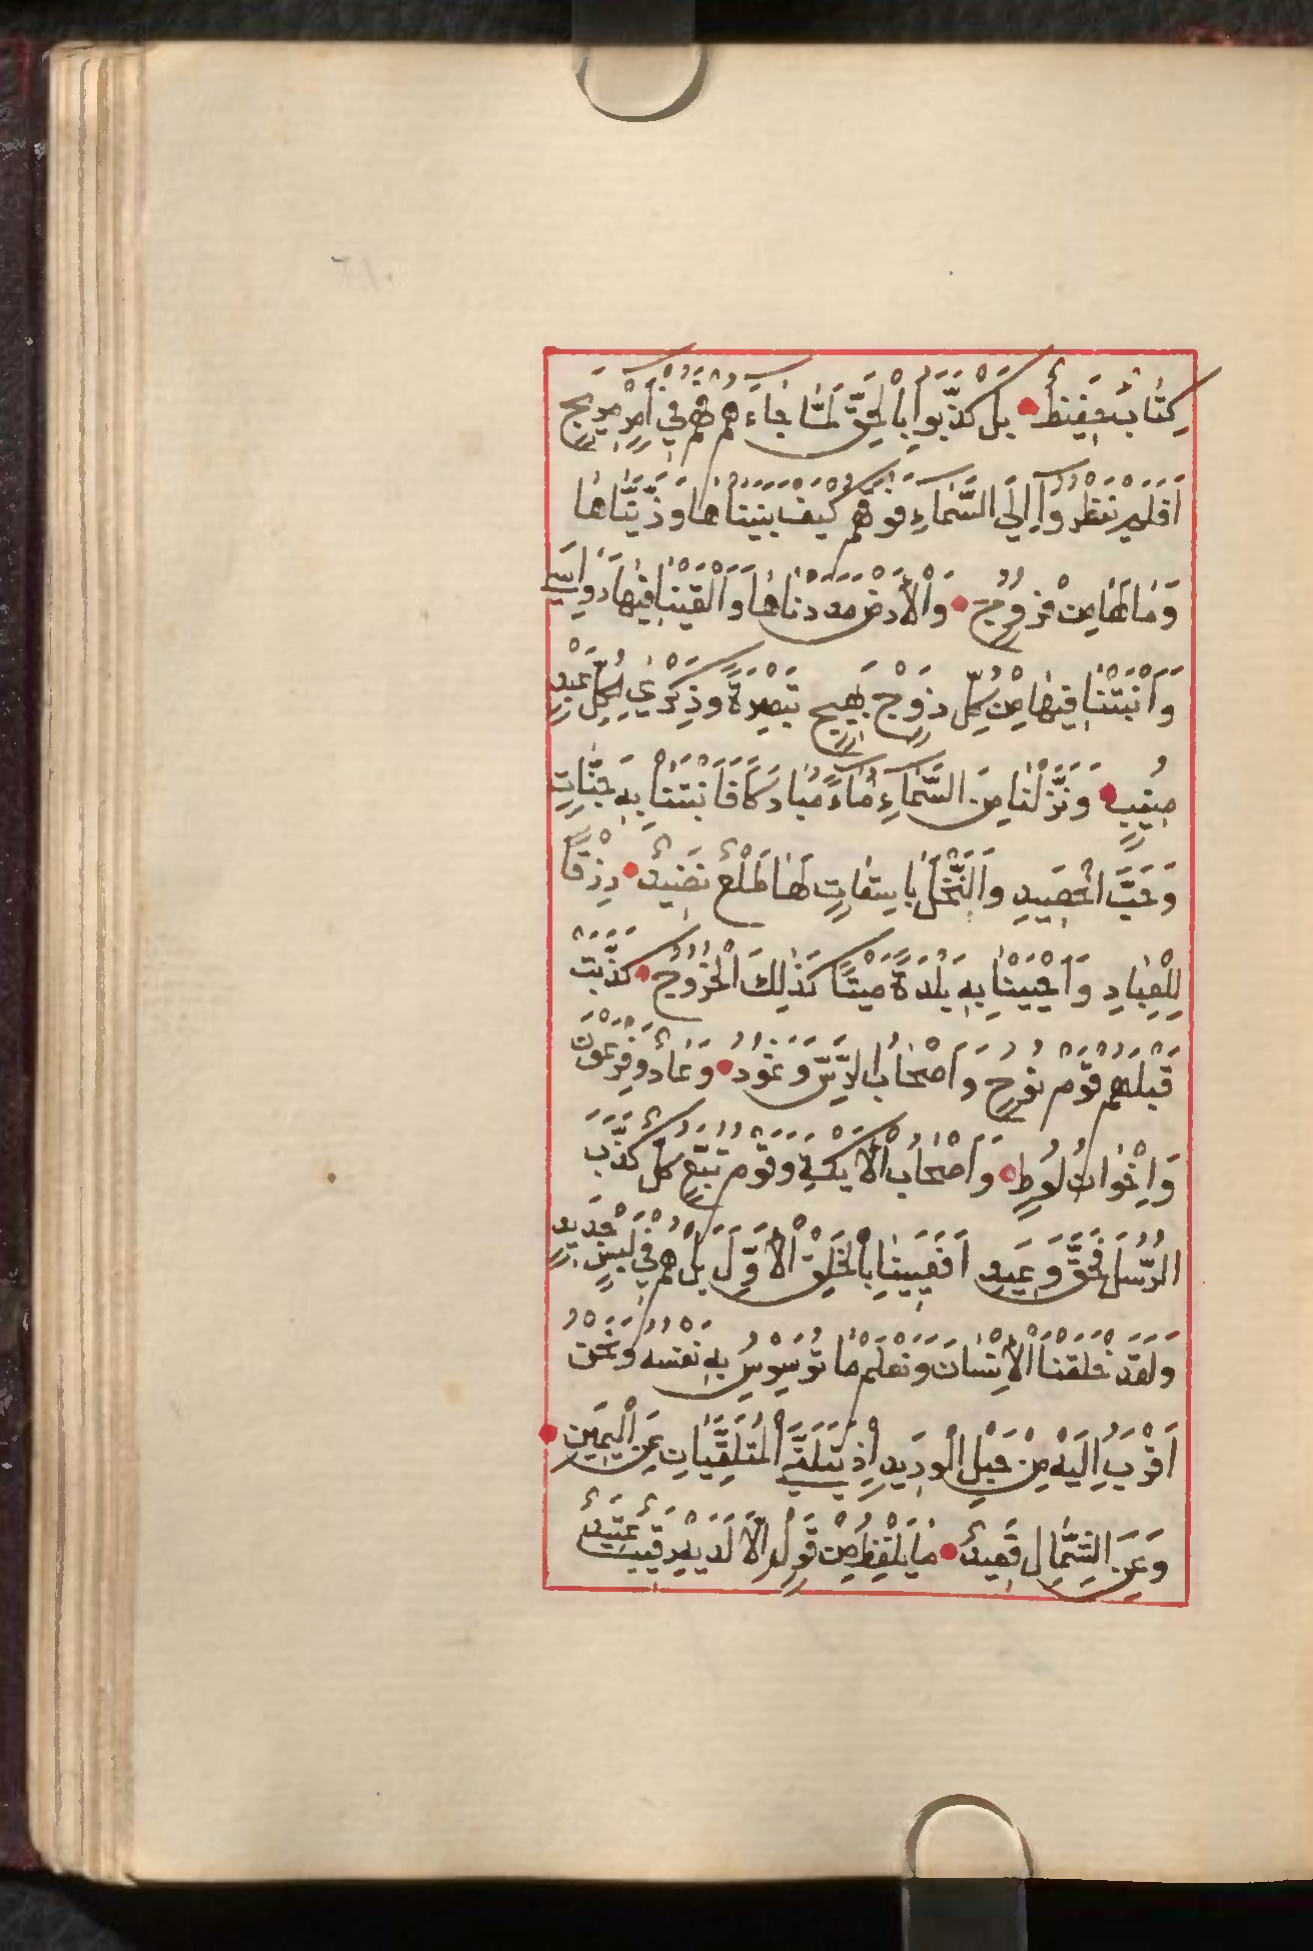 كِتَابٌ حَفِيظٌ بَلْ كَذَّبُوا بِالْحَقِّ لَمَّا جَاءَهُمْ فَهُمْ فِي أَمْرٍ مَرِيجٍ
اَفَلَمْ يَنْظُرُوا اِلَي السَّمَاءِ فَوْقَهُمْ كَيْفَ بَنَيْنَاهَا وَزَيَّنَّاهَا
وَمَا لَهَا مِنْ فُرُوجٍ وَالْاَرْضَ مَدَدْنَاهَا وَاَلْقَيْنَا فِيهَا رَوَاسِيَ
وَاَنْبَتْنَا فِيهَا مِنْ كُلِّ زَوْجٍ بَهِيجٍ تَبْصِرَةً وَذِكْرَي لِكُلِّ عَبْدٍ
مُنِيبٍ وَنَزَّلْنَا مِنَ السَّمَاءِ مَاءً مُبَارَكًا فَاَنْبَتْنَا بِهِ جَنَّاتٍ
وَحَبَّ الْحَصِيدِ وَالنَّخْلَ بَاسِقَاتٍ لَهَا طَلْعٌ نَضِيدٌ رِزْقًا
لِلْعِبَادِ وَاَحْيَيْنَا بِهِ بَلْدَةً مَيْتًا كَذَلِكَ الْخُرُوجُ كَذَّبَتْ
قَبْلَهُمْ قَوْمُ نُوحٍ وَاَصْحَابُ الرَّسِّ وَثَمُودُ وَعَادٌ وَفِرْعَوْنُ
وَاِخْوَانُ لُوطٍ وَاَصْحَابُ الْاَيْكَةِ وَقَوْمُ تُبَّعٍ كُلٌّ كَذَّبَ
الرُّسُلَ فَحَقَّ وَعِيدِ اَفَعَيِينَا بِالْخَلْقِ الْاَوَّلِ بَلْ هُمْ فِي لَبْسٍ جَدِيدٍ
وَلَقَدْ خَلَقْنَا الْاِنْسَانَ وَنَعْلَمُ مَا تُوَسْوِسُ بِهِ نَفْسُهُ وَنَحْنُ
اَقْرَبُ اِلَيْهِ مِنْ حَبْلِ الْوَرِيدِ اِذْ يَتَلَقَّي الْمُتَلَقِّيَانِ عَنِ الْيَمِينِ
وَعَنِ الشِّمَالِ قَعِيدٌ مَا يَلْفِظُ مِنْ قَوْلٍ اِلَّا لَدَيْهِ رَقِيبٌ عَتِيدٌ